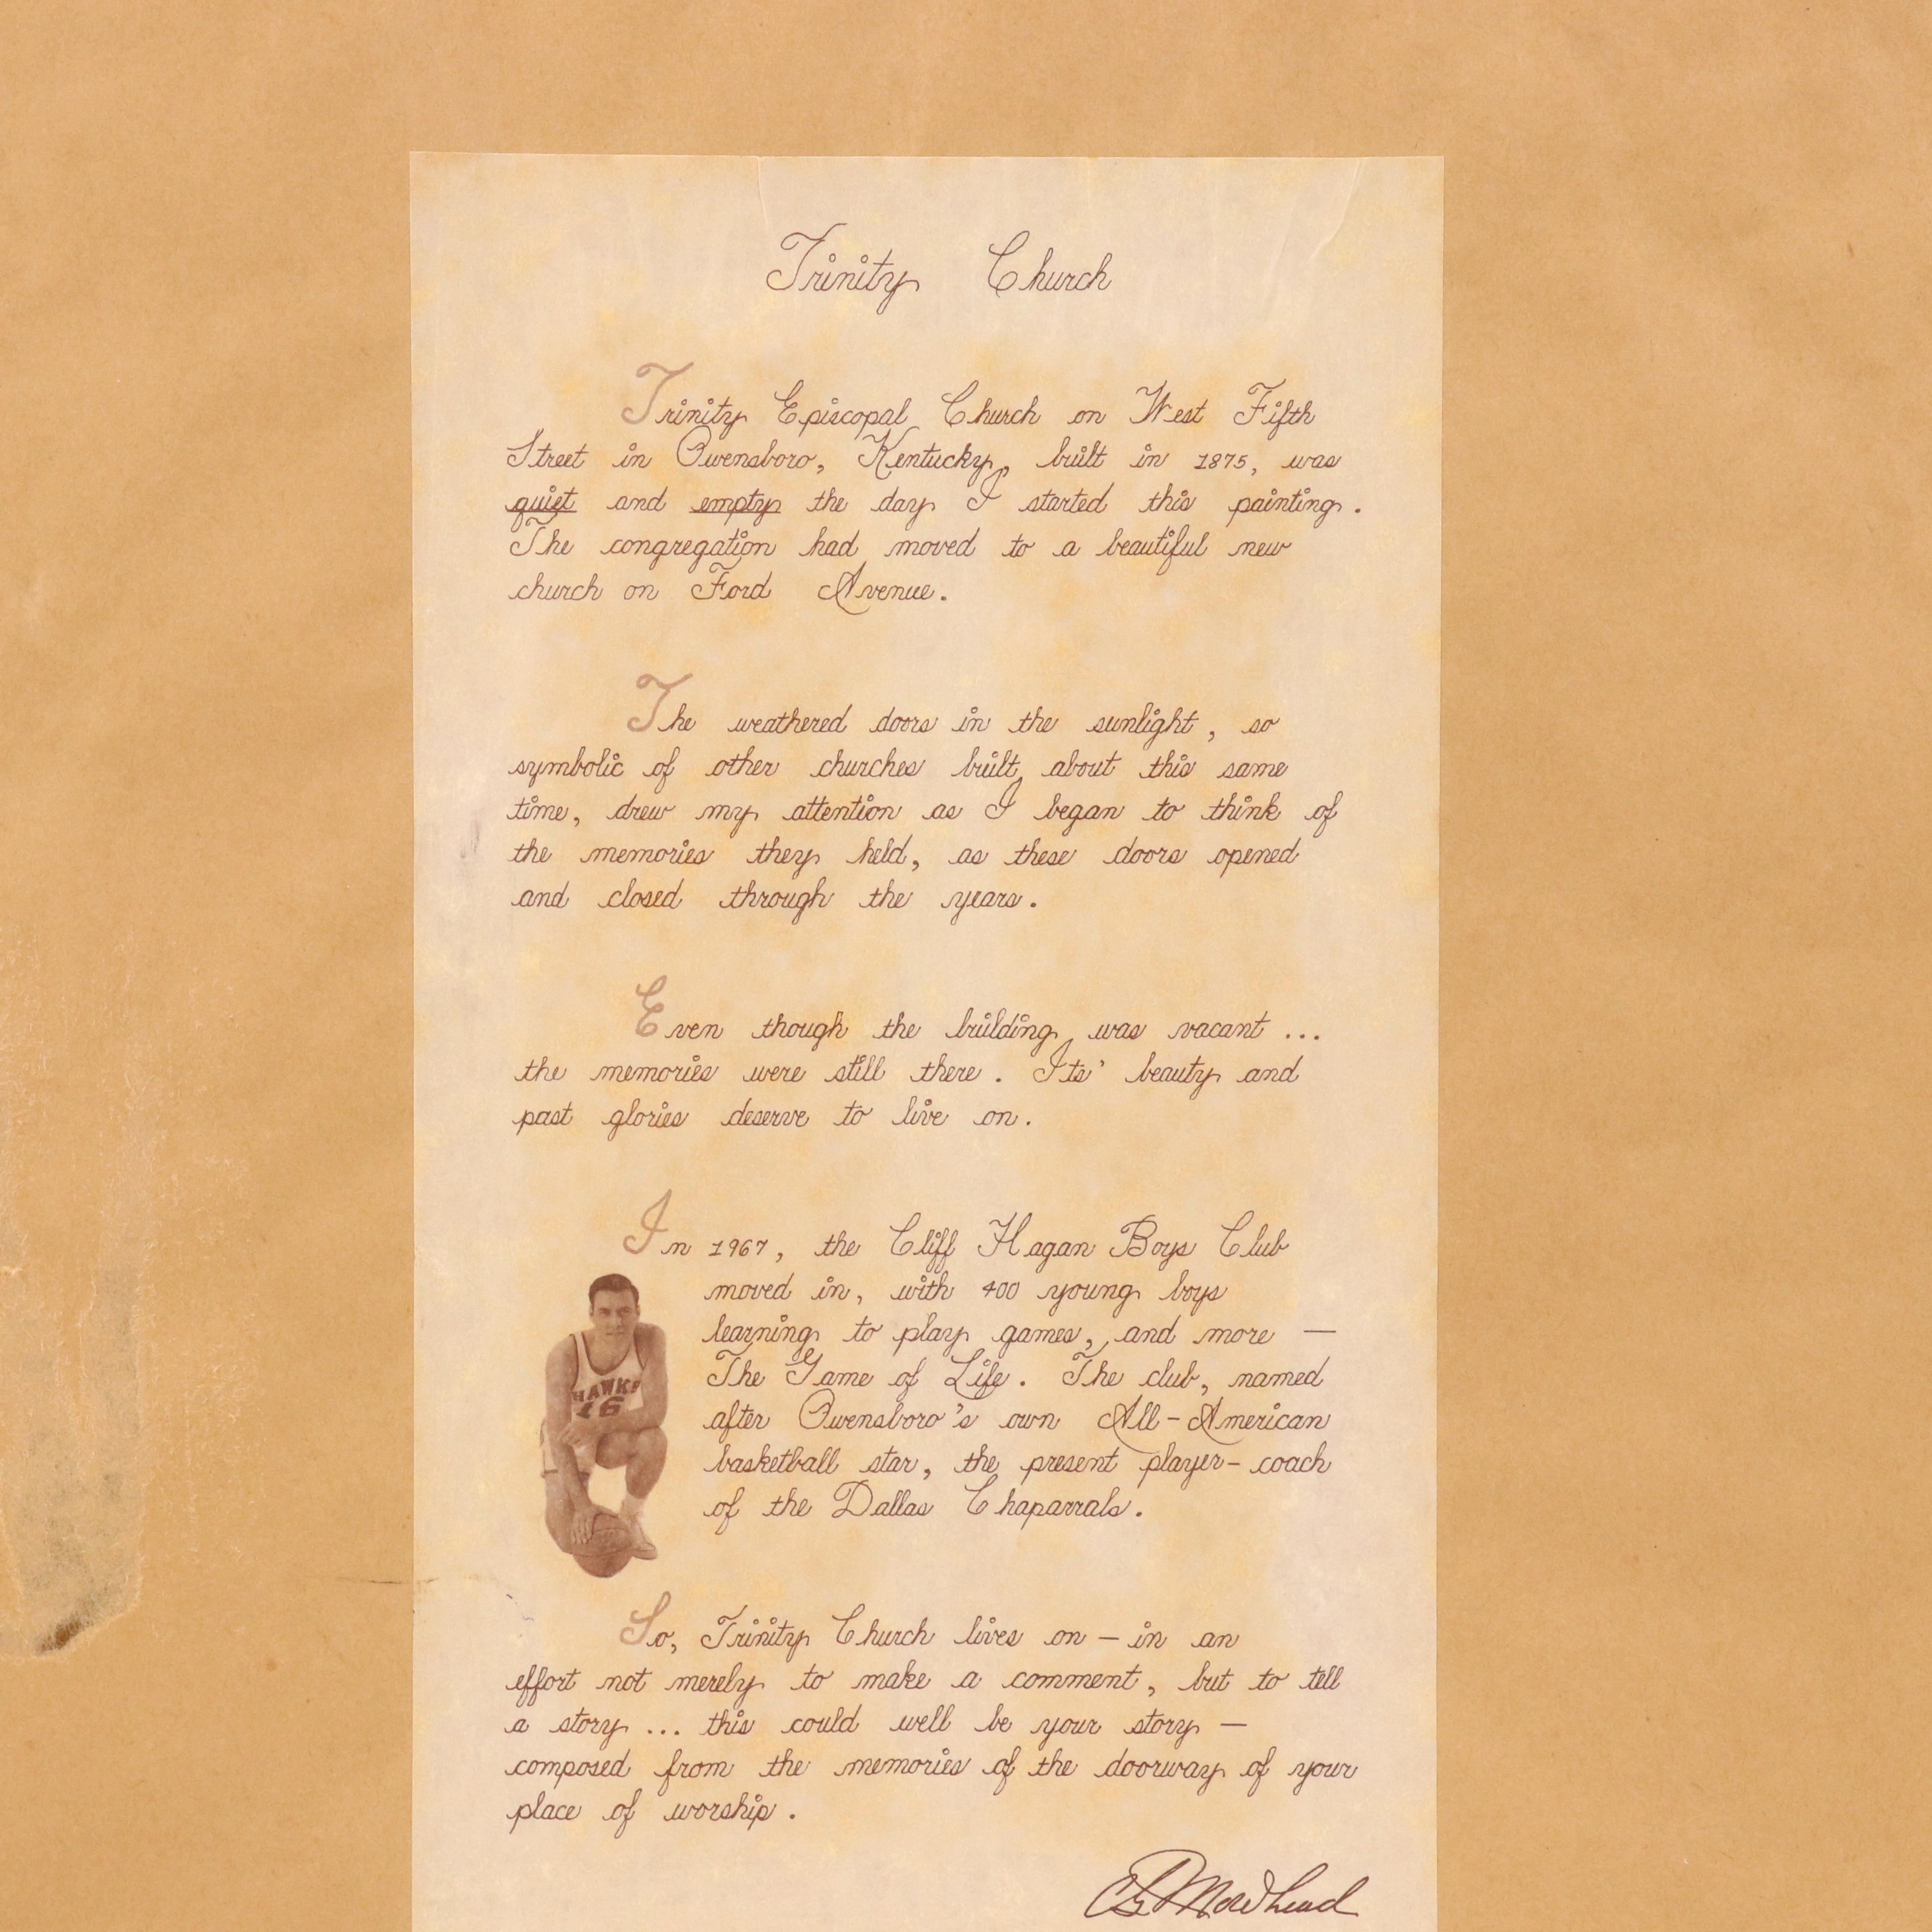 Trinity Church
Trinity Episcopal Church on West Fifth
Street in Owensboro, Kentucky, built in 1875, was
quiet and empty the day I started this painting.
The congregation had moved to a beautiful new
church on Ford Avenue.
The weathered doors in the sunlight, so
symbolic of other churches built about this same
time, drew my attention as I began to think of
the memories they held, as these doors opened
and closed through the years.
Even though the building was vacant ...
the memories were still there. Its' beauty and
past glories deserve to live on.
In 1967, the Cliff Hagan Boys Club
moved in, with 400 young boys
learning to play games, and more —
The Game of Life. The club, named
after Owensboro's own All-American
basketball star, the present player-coach
of the Dallas Chaparrals.
HAWKS
16
So, Trinity Church lives on — in an
effort not merely to make a comment, but to tell
a story ... this could well be your story —
composed from the memories of the doorway of your
place of worship.